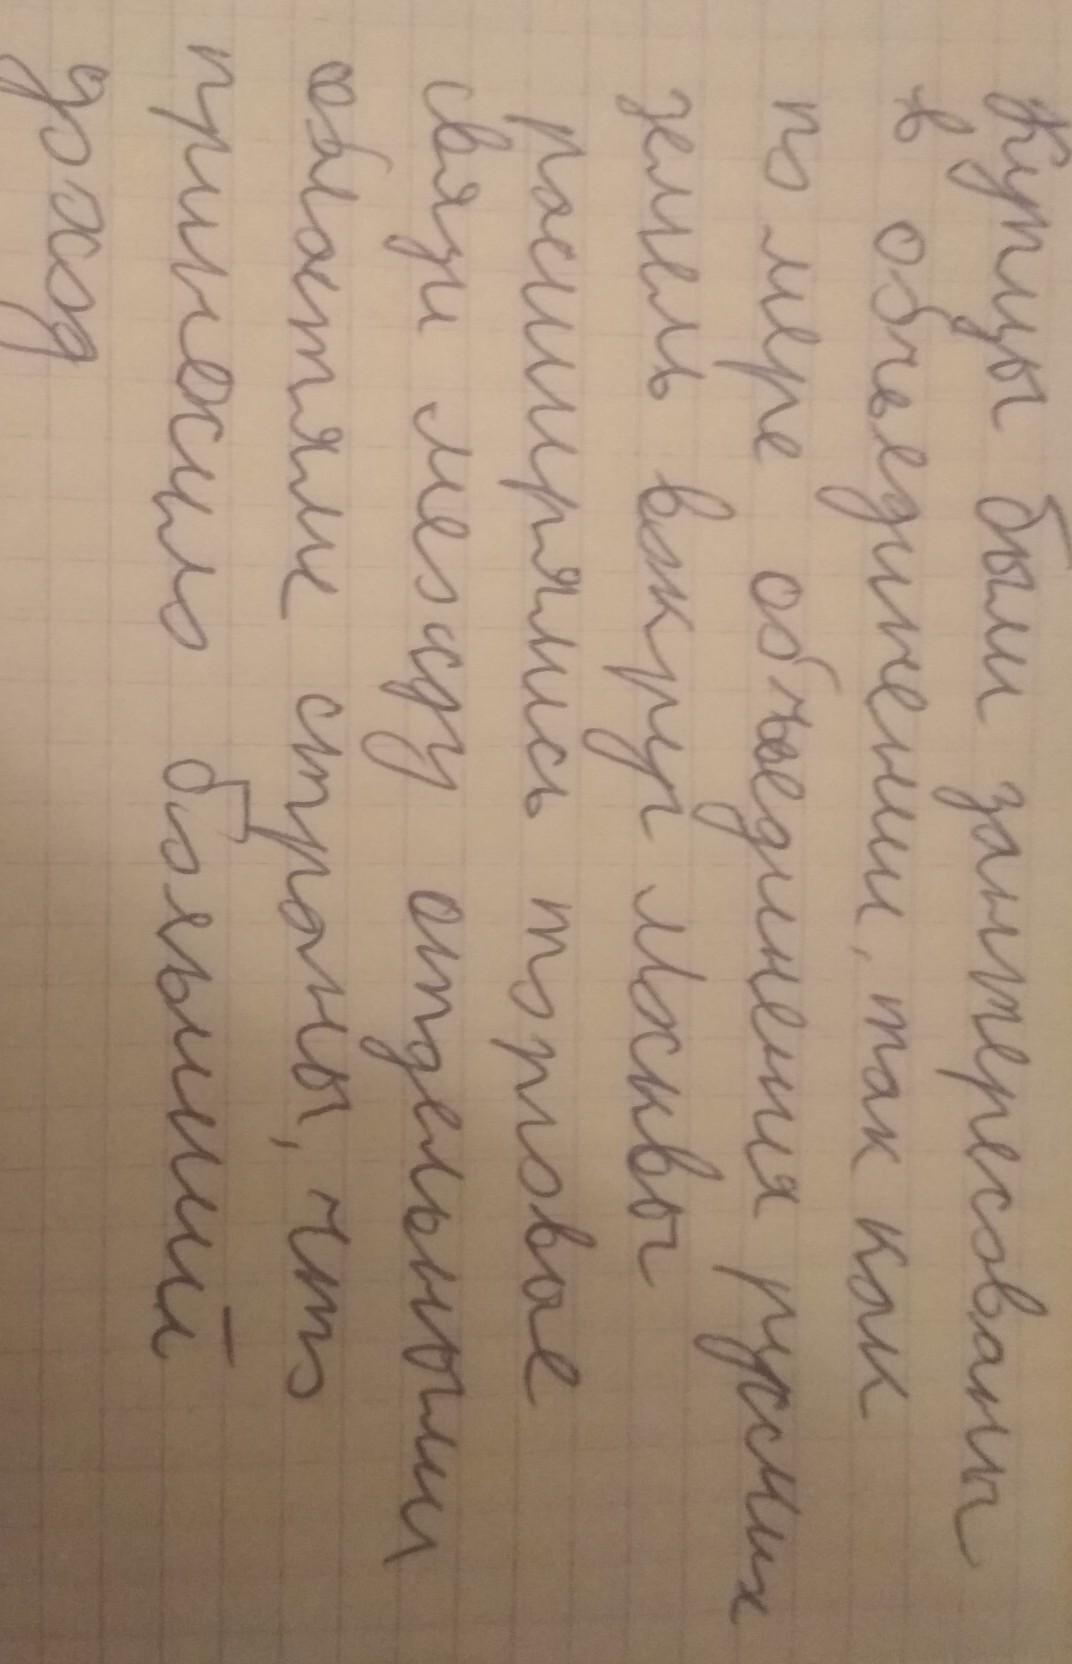 Купцы были заинтересованы
в объединении, так как
по мере объединения русских
земель вокруг Москвы
расширялись торговые
связи между отдельными
областями страны, что
приносило большиий
доход